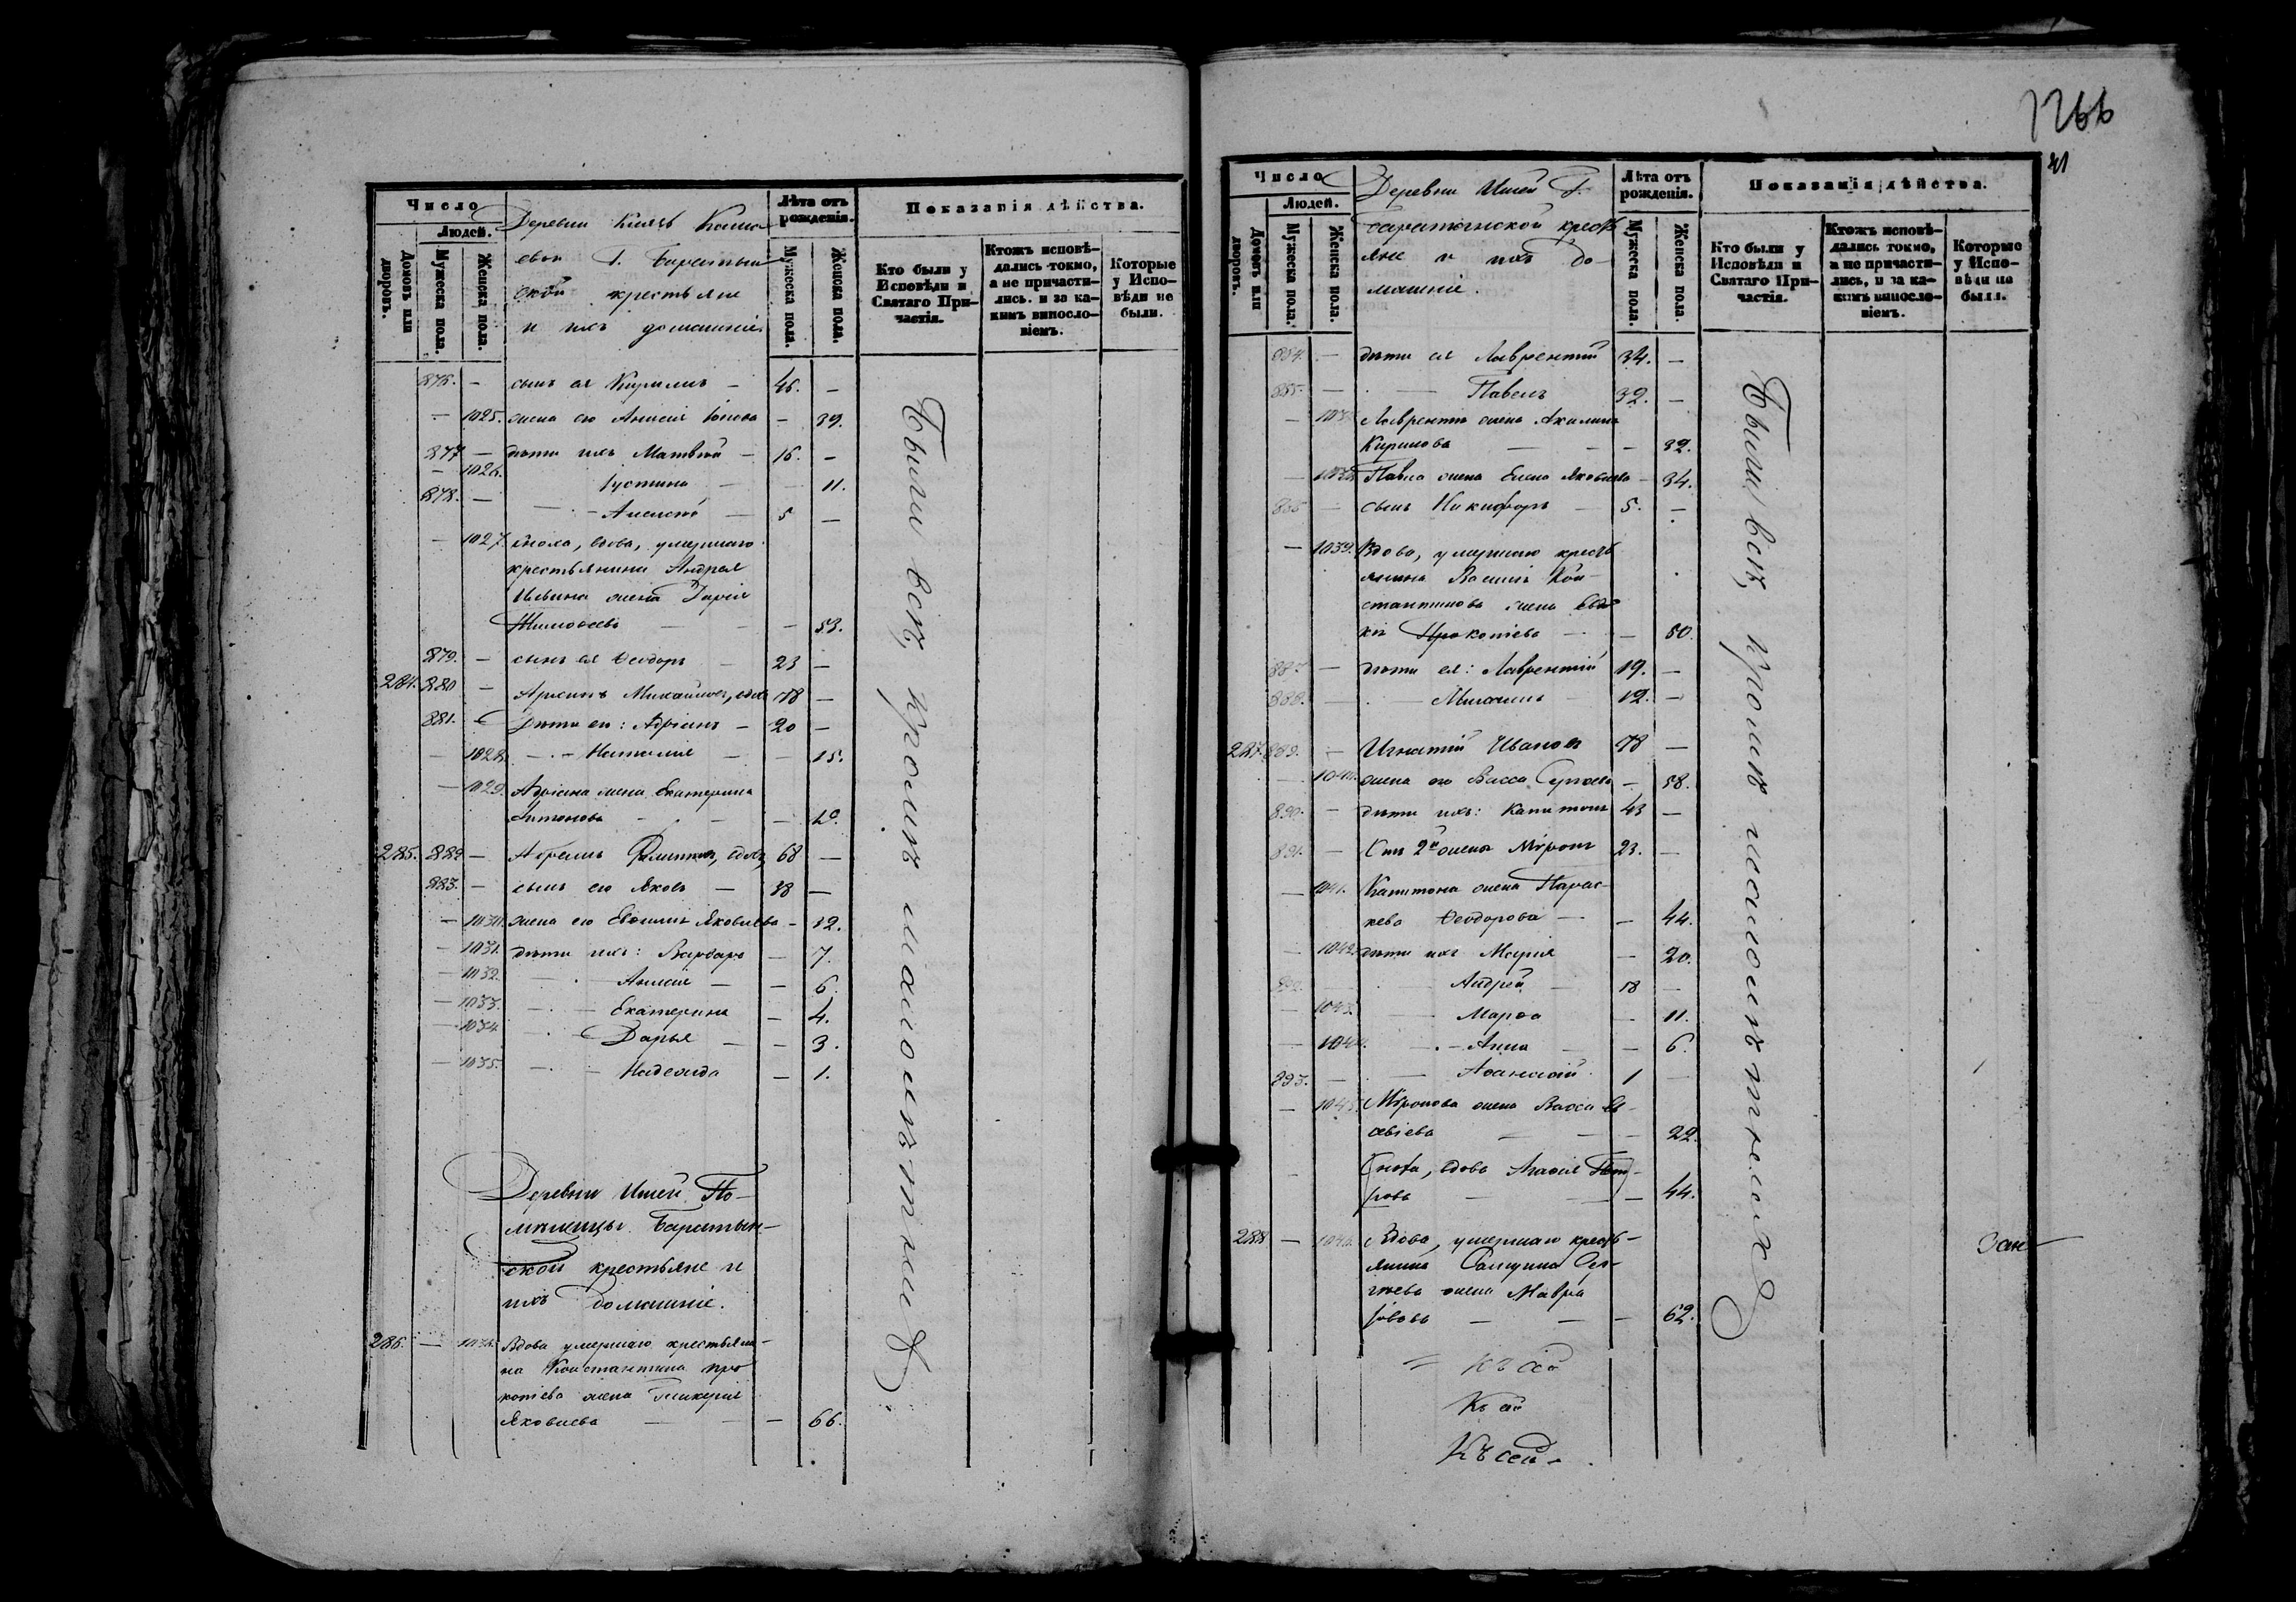 Число
Людей.
Домовъ или дворовъ.
Мужеска пола.
Женска пола.
Деревни Князь Кама
евой Г. Баратын
ской крестьяне
и ихъ домашніе
Лѣта отъ рожденія.
Мужеска пола.
Женска пола.
Показанія дѣйства.
Кто были у Исповѣди и Святаго Причастія.
Ктожъ исповѣдались токмо, а не причастились. и за какимъ винословіемъ.
Которые у Исповѣди не были.
876. — сынъ ея Кирилъ — 46. —
— 1025. жена его Анисія Іонова — 39.
877 — дѣти ихъ Матвѣй — 16. —
— 1026. Іустина — — 11.
878. — — Алексѣй — 5 —
— 1027. сноха, вдова, умершаго
крестьянина Андрея
Ильина жена Дарія
Тимоѳеева — — — 53.
879. — сынъ ея Ѳеодоръ — 23 —
284. 880 — Михайловъ, вдов 48 —
881. — Дѣти его: Адріанъ — 20 —
— 1028. — Наталія — — 15.
— 1029. Адріана жена Екатерина
Антонова — — —
285. 882 — Филиппов, вдов 68 —
883. — сынъ его Яковъ — 38 —
— 1030. жена его Евѳимія Яковлева — 32.
— 1031. дѣти ихъ: Варвара — 7.
— 1032. — Анисія — — 6.
— 1033. — Екатерина — 4.
— 1034. — Дарья — — 3.
— 1035. — Надежда — 1.
Деревни Ишей По-
мѣщицы Баратын-
ской крестьяне и
ихъ домашніе.
286. — 1036. Вдова умершаго крестьяни-
на Константина Про
копіева жена Гликерія
Яковлева — — — 66.
Были всѣ, кромѣ малолѣтнихъ
1266
41
Число
Людей.
Домовъ или дворовъ.
Мужеска пола.
Женска пола.
Деревни Ишей Г.
Баратынской кресть
яне и ихъ до-
машніе.
Лѣта отъ рожденія.
Мужеска пола.
Женска пола.
Показанія дѣйства.
Кто были у Исповѣди и Святаго Причастія.
Ктожъ исповѣдались токмо, а не причастились, и за какимъ винословіемъ.
Которые у Исповѣди не были.
884. — дѣти ея Лаврентій 34. —
885. — — Павелъ 32. —
— Лаврентія жена Акилина
Кирилова — — 32.
— 1038. Павла жена Елена Яковлева — 34.
886 — сынъ Никифоръ — 5. —
— 1039. Вдова, умершаго кресть
янина Василія Кон-
стантинова жена Евдо
кія Прокопіева — — 50.
887. — дѣти ея: Лаврентій 19. —
888. — — Михаилъ — 12. —
287. 889. — Игнатій Ивановъ 78 —
— 1040. жена его Васса Сергѣева — 58.
890. — дѣти ихъ: Капитонъ 43 —
891. — От 2й жены Мѵронъ 23. —
— 1041. Капитона жена Парас-
кева Ѳеодорова — — 44.
— 1042. дѣти ихъ Марія — 20.
892. — — Андрей — 18 —
— 1043. — Марѳа — 11.
— 1044. — Анна — — 6.
893. — — Аѳанасій 1 —
— 1045. Мѵронова жена Васса Ев-
сѣвіева — — — 22.
— Сноха, вдова Агаѳія Пет-
рова — — — 44.
288 — 1046. Вдова, умершаго кресть-
янина Сер-
гѣева жена Мавра
Іовова — — — 62.
Были всѣ, кромѣ малолѣтнихъ
Зан
Къ сей
Къ ей
Къ сей